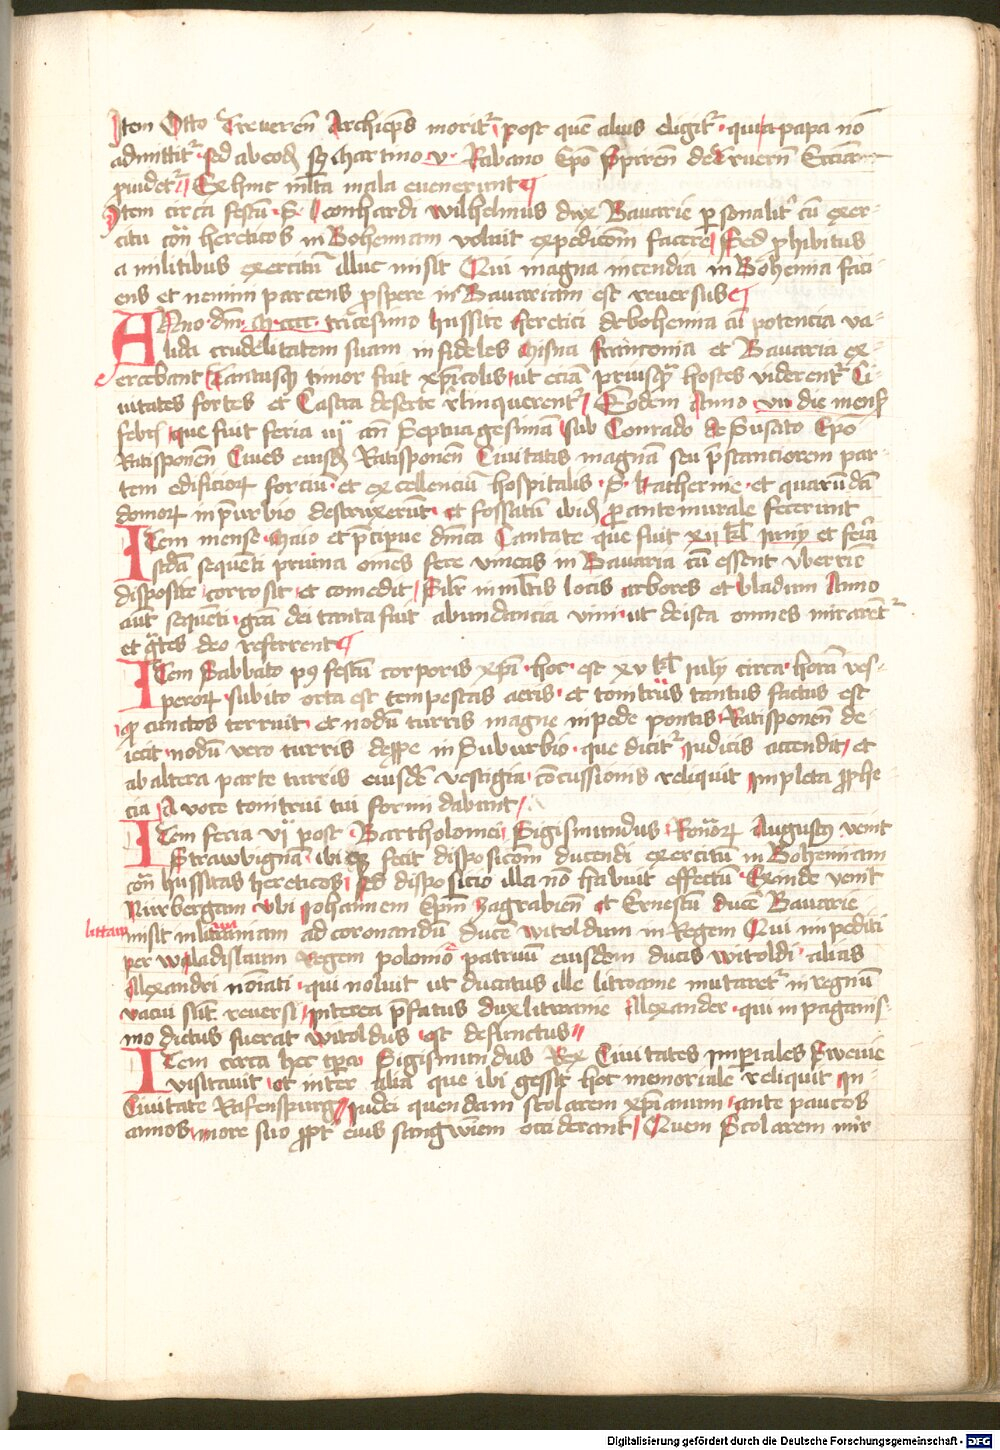 Item Otto Treveren̄ Archiep̄s morit᷑ post quē alius eligit᷑ quia papa nō
admittit᷑ sed ab eod̄ sz martino v. Rabano Ep̄o Spiren̄ de Trueren̄ Ecciam
ꝓuidet᷑ Ex hinc ml̄ta mala euenerunt
Item circa festū S. Leonhardi Wilhelmus dux Bauarie ꝑsonalit᷑ cū exer-
citu cōn hereticos in Bohemiam voluit expedicōm facere Sed ꝓhibitus
a militibus exercitū illuc misit Qui magna incendia in Bohemia faci-
ens et nemini parcens ꝓspere in Bauariam est reuersus
ANno dn̄i Mcccc tricesimo hussite heretici de bohemia cū potencia va-
lida crudelitatem suam in fideles Misna franconia et Bauaria ex-
ercebant Tantusqꝫ timor fuit xp̄icolis ut eciā priusqᷓ hostes viderent᷑ Ci-
uitates fortes et Castra deserte r̄linquerent᷑ Eodem Anno vii die mens̄
febr̄ que fuit feria iij an̄ Septuagesimā sub Conrado de Susato Ep̄o
Ratisponen̄ Ciues eiusd̄ Ratisponen̄ Ciuitatis magnā seu p̄stanciorem par-
tem edificioꝝ forciū et excellenciū hospitalis S. Katherine et quarūdā
domoꝝ in p̄urbio destruxerūt et fossatū ibid̄ ꝓ antemurale fecerunt
ITem mense Maio et p̄cipue dn̄ica Cantate que fuit xij kl̄ Junij et feria
scd̄a sequēti pruina om̄es fere vineas in Bauaria cū essent vberrie
disposite corrosit et comedit Silr̄ in ml̄tis locis arbores et bladum Anno
aut̄ sequēti gr̄a dei tanta fuit abundancia vini ut de ista omnes mirarēt᷑
et gr̄tes deo referrent
ITem Sabbato p9 festū corporis xp̄i hoc est xv kl̄ July circa horā ves-
peroꝝ subito orta est tempestas aeris et tonitruus tantus factus est
qꝫ cunctos terruit et nodū turris magne in pede pontis Ratisponen̄ de-
iecit nodū vero turris deꝓpe in Suburbio que dicit᷑ Judicis accendit et
ab altera parte turris eiusdē vestigia cōcussionis reliquit impleta ꝓphe
cia A voce tonitrui tui formidabunt
ITem feria vj post Bartholomei Sigismundus Romāoꝝ Augustus venit
Strawbigna ibiqꝫ fecit disposicōm ducendi exercitū in Bohemiam
cōn hussitas hereticos sed disposicio illa nō habuit effectū Exinde venit
Nurbergam Vbi Johannem Ep̄m Zagrabien̄ et Ernestū ducē Bauarie
littaw
misit in litwaniam ad coronandū ducē Witoldum in Regem Qui impediti
per Wladislaum Regem polonie patruū eiusdem ducis Witoldi alias
Alexandri nōiati qui noluit ut ducatus ille litwanie mutaret᷑ in regnū
vacui sūt reuersi Interea p̄fatus dux litwanie Alexander qui in paganis-
mo dictus fuerat Witoldus est defunctus
ITem circa hec tp̄a Sigismundus Rex Ciuitates Imperiales Sweuie
visitauit et inter alia que ibi gessit hoc memoriale reliquit In
Ciuitate Rafenspurg Judei quendam scolarem xp̄ianum ante paucos
annos more suo ꝓpt̄ eius sangwiem occiderant Quem Scolarem mir